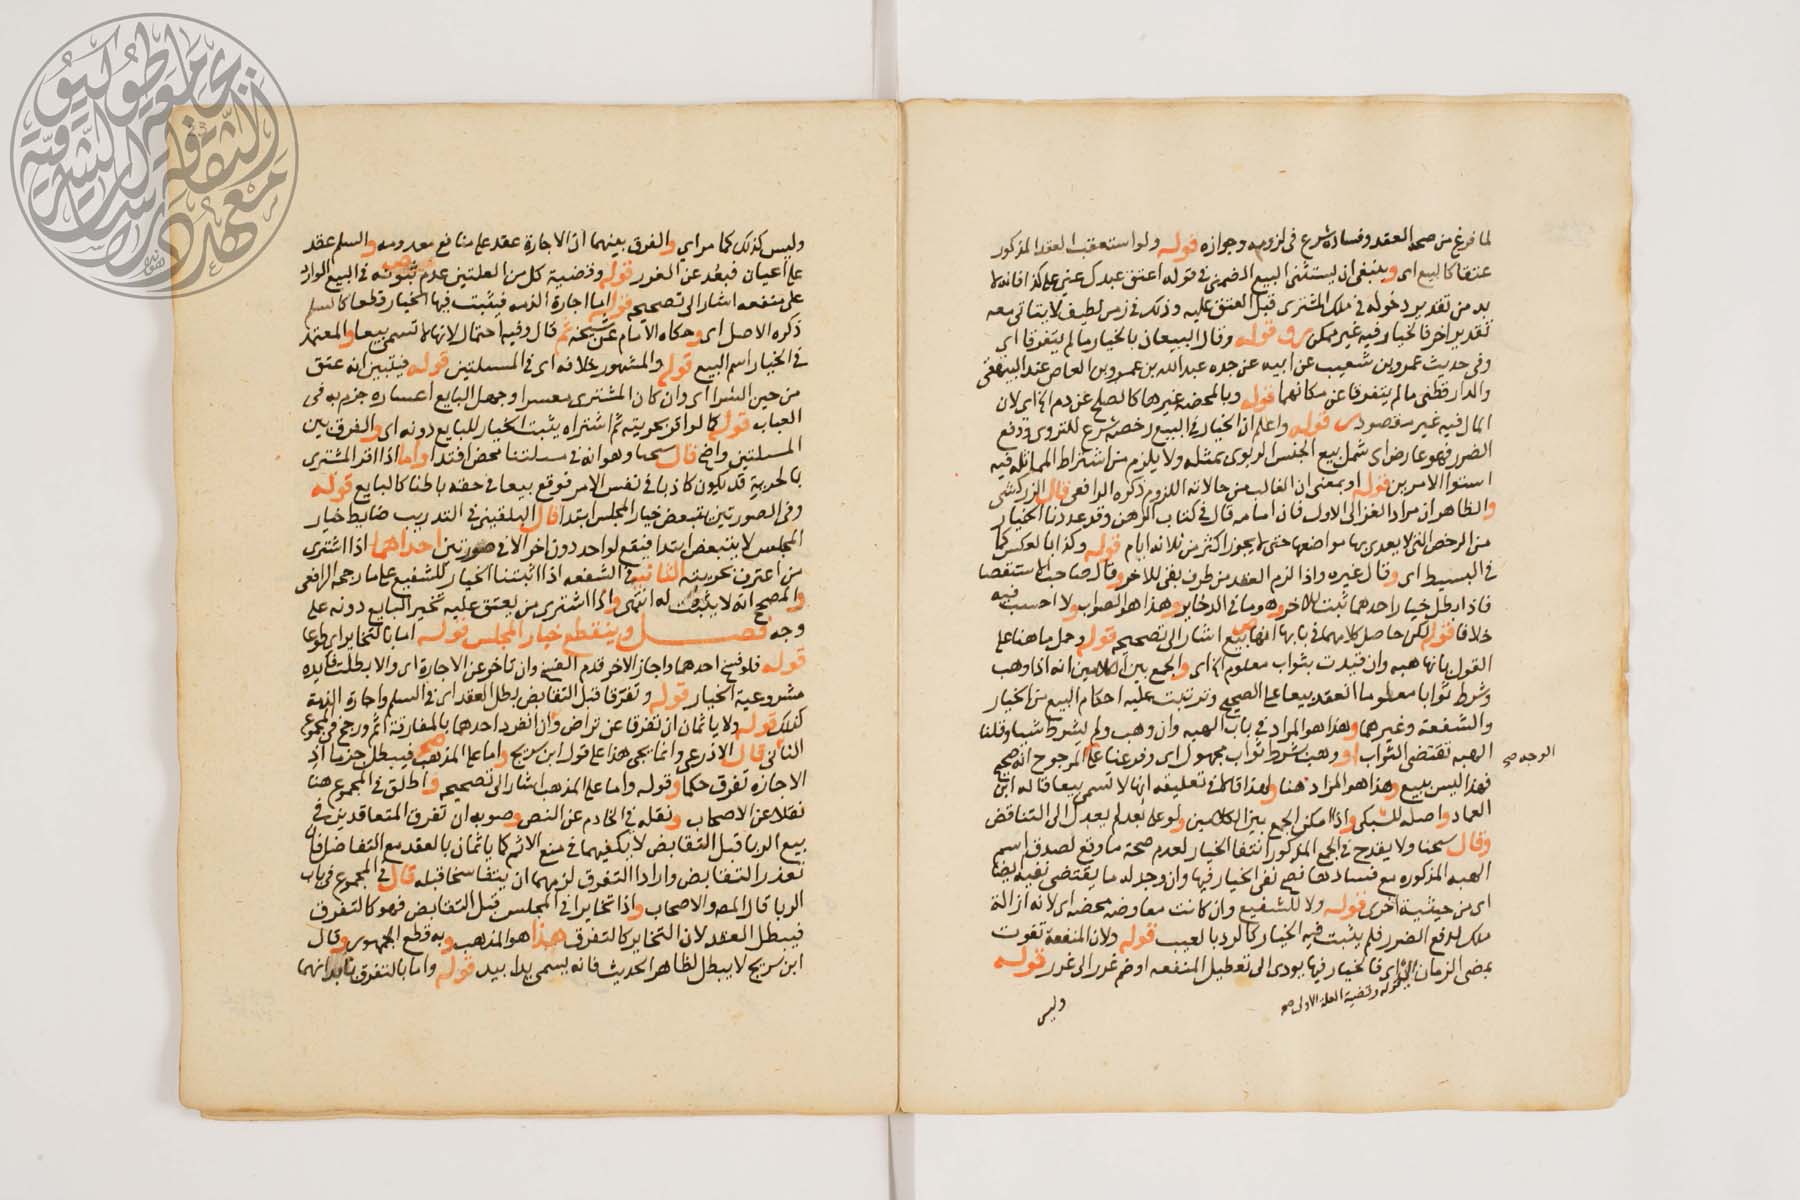 لما فرغ من صحة العقد وفساده شرع في لزومه وجوازه قوله ولو استعقب العقد المذكور
عتقا كالبيع اي وينبغي ان يستثنى البيع الضمني في قوله اعتق عبدك عني على كذا فانه لا
بد من تقدير دخوله في ملك المشتري قبل العتق عليه وذلك في زمن لطيف لا يتاتى معه
تقدير اخر فالخيار فيه غير ممكن قوله وقال البيعان بالخيار ما لم يتفرقا اي
وفي حديث عمرو بن شعيب عن ابيه عن جده عبد الله بن عمرو بن العاص عند البيهقي
والدارقطني ما لم يتفرقا عن مكانهما قوله وبالمحضة غيرها كالصلح عن دم الخ اي لان
المال فيه غير مقصود قوله واعلم ان الخيار في البيع رخصة شرع للتروي ودفع
الضرر فهو عارض اي شمل بيع الجنس الربوي بمثله ولا يلزم من اشتراط المماثلة فيه
استوا الامرين قوله او بمعنى ان الغالب من حالاته اللزوم ذكره الرافعي قال الزركشي
والظاهر ان مراد الغزالي الاول فان امامه قال في كتاب الرهن وقد عددنا الخيار
من الرخص التي لا يعدى بها مواضعها حتى لا يجوز اكثر من ثلاثة ايام قوله وكذا بالعكس كما
في البسيط اي وقال غيره واذا لزم العقد من طرف بقي للاخر وقال صاحب الاستقصا
فاذا بطل خيار احدهما ثبت للاخر وهو ما في الدخاير وهذا هو الصواب ولا احسب فيه
خلافا قوله لكن حاصل كلامهما في بابها انها بيع اشار الى تصحيحه قوله وحمل ما هنا على
القول بانها هبة وان قيدت بثواب معلوم الخ اي والجمع بين الكلامين انه اذا وهب
وشرط ثوابا معلوما انعقد بيعا على الصحيح وترتبت عليه احكام البيع من الخيار
والشفعة وغيرهما وهذا هو المراد في باب الهبة وان وهب ولم يشرط شيا وقلنا
الهبة تقتضي الثواب او وهب بشرط ثواب مجهول اي وفرعنا على المرجوح انه صحيح
الوجه صح
فهذا ليس ببيع وهذا هو المراد هنا ولهذا قال في تعليقه انها لا تسمى بيعا قاله ابن
العماد واصله للسبكي واذا امكن الجمع بين الكلامين ولو على بعد لم يعدل الى التناقض
وقال شيخنا ولا يقدح في الجمع المذكور انتفا الخيار لعدم صحة ما وقع لصدق اسم
الهبة المذكورة مع فسادها فصح نفي الخيار فيها وان وجد له ما يقتضي نفيه ايضا
اي من حيثية اخرى قوله ولا للشفيع وان كانت معاوضة محضة اي لانه ازالة
ملك لدفع الضرر فلم يثبت فيه الخيار كالرد بالعيب قوله ولان المنفعة تفوت
بمضي الزمان الخ اي فالخيار فيها يودي الى تعطيل المنفعة او ضم غرر الى غرر قوله
قوله وقضية العلة الاولى صح
وليس
وليس كذلك كما مر اي والفرق بينهما ان الاجارة عقد على منافع معدومة والسلم عقد
على اعيان فبعد عن الغرر قوله وقضية كل من العلتين عدم ثبوته في البيع الوارد
على منفعة اشار الى تصحيحه قوله اما اجارة الذمة فيثبت فيها الخيار قطعا كالسلم
ذكره الاصل اي وحكاه الامام عن شيخه ثم قال وفيه احتمال لانها لا تسمى بيعا والمعتمد
في الخيار اسم البيع قوله والمشهور خلافه اي في المسئلتين قوله فيتبين انه عتق
من حين الشرا اي وان كان المشتري معسرا وجهل البايع اعساره جزم به في
العباب قوله كما لو اقر بحريته ثم اشتراه يثبت الخيار للبايع دونه اي والفرق بين
المسئلتين واضح قال شيخنا وهو انه في مسئلتنا محض افتدا واما اذا اقر المشتري
بالحرية قد يكون كاذبا في نفس الامر فوقع بيعا في حقه باطنا كالبايع قوله
وفي الصورتين يتبعض خيار المجلس ابتدا قال البلقيني في التدريب ضابط خيار
المجلس لا يتبعض ابتدا فيقع لواحد دون اخر الا في صورتين احداهما اذا اشترى
من اعترف بحريته الثانية في الشفعة اذا اثبتنا الخيار للشفيع على ما رجحه الرافعي
والمصحح انه لا يثبت له انتهى واذا اشترى من يعتق عليه تخير البايع دونه على
وجه فصل وينقطع خيار المجلس قوله اما بالتخاير اي طوعا
قوله فلو فسخ احدهما واجاز الاخر قدم الفسخ وان تاخر عن الاجازة اي والا بطلت فايدة
مشروعية الخيار قوله وتفرقا قبل التقابض بطل العقد اي في السلم واجارة الذمة
كذلك قوله ولا ياثمان ان تفرقا عن تراض وان انفرد احدهما بالمفارقة اثم ورجح في المجموع
الثاني قال الاذرعي وانما يجي هذا على قول ابن سريج واما على المذهب فيبطل جزما اذ
الاجازة تفرق حكما وقوله واما على المذهب اشار الى تصحيحه واطلق في المجموع هنا
نقلا عن الاصحاب ونقله في الخادم عن النص وصوبه ان تفرق المتعاقدين في
بيع الربا قبل التقابض لا يكفيهما في منع الاثم كما ياثمان بالعقد مع التفاضل فان
تعذر التقابض وارادا التفرق لزمهما ان يتفاسخا قبله قال في المجموع في باب
الربا قال المص والاصحاب واذا تخايرا في المجلس قبل التقابض فهو كالتفرق
فيبطل العقد لان التخاير كالتفرق هذا هو المذهب وبه قطع الجمهور وقال
ابن سريج لا يبطل لظاهر الحديث فانه يسمى يدا بيد قوله واما بالتفرق بابدانهما